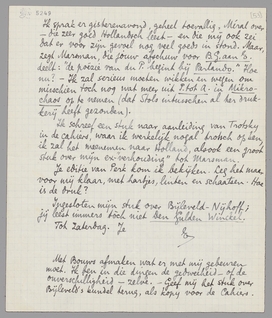 Ik sprak er gisterenavond, geheel toevallig, Miral over
– die zeer goed Hollandsch leest – en die mij ook zei
dat er voor zijn gevoel nog veel goeds in stond. Maar,
zegt Marsman, die jouw afschuw voor B.G. aan E.
deelt: "de poëzie van du P. begint bij Parlando." Hoe
nu? – Ik zal serieus moeten wikken en wegen om
misschien toch nog wat meer uit P. tot A. in Mikro-
chaos op te nemen (dat Stols intusschen al ter druk-
kerij heeft gezonden).
Ik schreef een stuk naar aanleiding van Trotsky
in de cahiers, waar ik vorzelijk nogal trotsch op ben
ik zal het meenemen naar Holland, alsook een groot
stuk over mijn "ex-verhouding" tot Marsman.
Je editie van Perk kom ik bekijken. Leg het maar
voor mij klaar, met hartjes, linten en schaatsen. Hoe
is de druk?
Ingesloten mijn stuk over Bijleveld-Nijhoff;
jij leest immers toch niet Den Gulden Winckel.
Tot Zaterdag. Je
E
Met Bouws afmaken wat er met mij gebeuren
moet. Ik ben in die dingen de gedweeheid – of de
onverschilligheid – zelve. – Geef mij het stuk over
Bijleveld's bundel terug, als kopij voor de Cahiers.